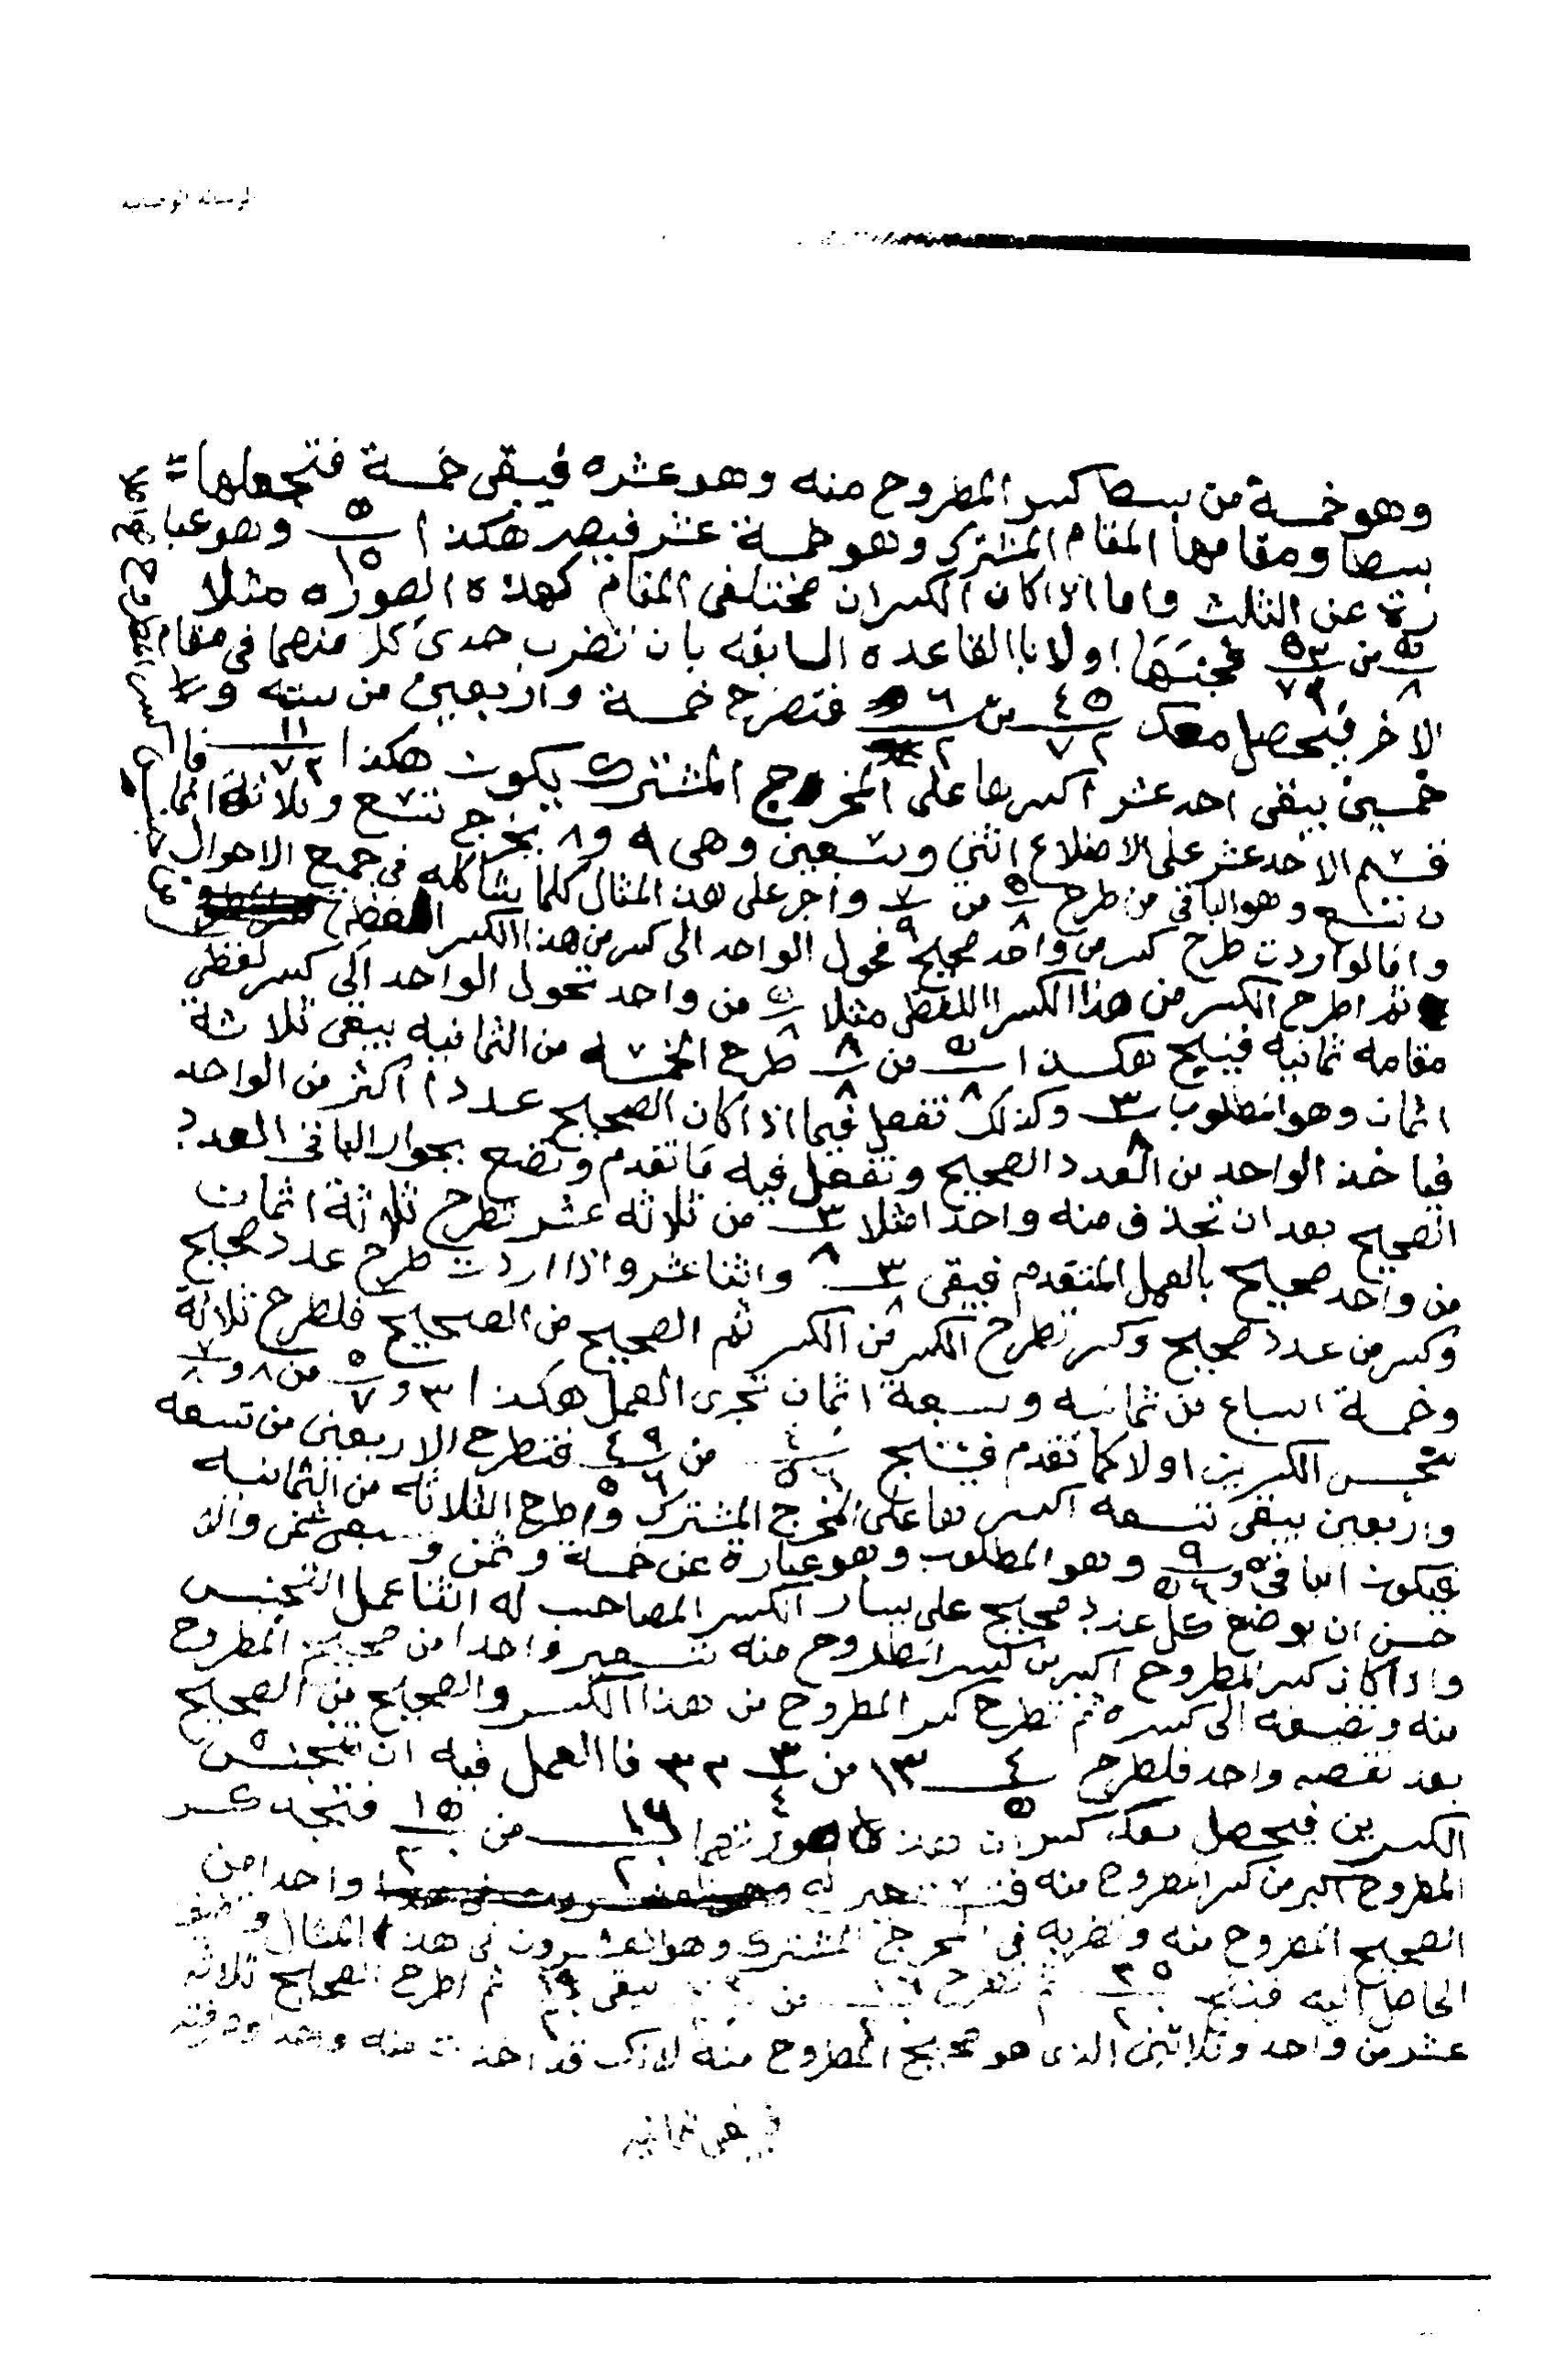 وهو خمسة من بسط كسر المطروح منه وهو عشره فيبقى خمسة فتجعلها =
بسطا ومقامها المقام المشترك وهو خمسة عشر فيصير هكذا ٥/١٥ وهو عبا
رة عن الثلث واما اذا كان الكسران مختلفى المقام كهذه الصوره مثلا
٥/٨ من ٧/٩ فجنسها اولا باالقاعده السابقه بان تضرب حدى كل منهما فى مقام
الاخر فيحصل معك ٤٥/٧٢ من ٥٦/٧٢ فتطرح خمسة واربعين من سته و
خمسين يبقى احد عشر اكسرها على المخرج المشترك يكون هكذا ١١/٧٢ فاا
قسم الاحد عشر على الاضلاع اثنين وسبعين وهى ٩ و٨ يخرج تسع وثلاثة اثما
ن تسع وهو الباقى من طرح ٥/٨ من ٧/٩ واجر على هذ المثال كلما يشاكله فى جميع الاحوال
واما لو اردت طرح كسر من واحد صحيح فحول الواحد الى كسر من هذا الكسر
ثم اطرح الكسر من هذا الكسر االلفظى مثلا ٥/٨ من واحد تحول الواحد الى كسر لفظى
مقامه ثمانيه فينتج هكذا ٥/٨ من ٨/٨ طرح الخمسه من الثمانيه يبقى ثلاثة
اثمان وهو المطلوب ٣/٨ وكذلك تفعل فيما اذا كان الصحيح عددا اكثر من الواحد
فيا خذ الواحد من العدد الصحيح وتفعل فيه ما تقدم وتضع بجوار الباقى العدد
الصحيح بعد ان تحذف منه واحدا مثلا ٣/٨ من ثلاثه عشر تطرح ثلاثة اثمان
من واحد صحيح بالعمل المتقدم فيبقى ٥/٨ واثنا عشر واذا اردت طرح عدد صحيح
وكسر من عدد صحيح وكسر تطرح الكسر من الكسر ثم الصحيح من الصحيح فلطرح ثلاثة
وخمسة اسباع من ثمانيه وسبعة اثمان تجرى العمل هكذا ٣ و٥/٧ من ٨ و٧/٨
تجنس الكسرين اولا كما تقدم فينتج ٤٠/٥٦ من ٤٩/٥٦ فتطرح الاربعين من تسعه
واربعين يبقى تسعه اكسرها على المخرج المشترك واطرح الثلاثه من الثمانيه
فيكون الباقى ٥ و٩/٥٦ وهو المطلوب وهو عبارة عن خمسة وثمن وسبعى ثمن والا
حسن ان يوضع كل عدد صحيح على يسار الكسر المصاحب له اثنا عمل التجنيس
واذا كان كسر المطروح اكبر من كسر المطروح منه تستعير واحدا من صحيح المطروح
منه وتضيفه الى كسره ثم تطرح كسر المطروح من هذا الكسر والصحيح من الصحيح
بعد نقصه واحد فلطرح ٤/٥ ١٣ من ٣/٤ ٣٢ فا العمل فيه ان تجنس
الكسرين فيحصل معك كسران هذه صورتهما ١٦/٢٠ من ١٥/٢٠ فتجد كسر
المطروح اكبر من كسر المطروح منه فتستعير له واحدا من
الصحيح المطروح منه وتضربه فى المخرج المشترك وهو العشرون فى هذا المثال وتضيف
الحاصل اليه فينتج ٣٥/٢٠ ثم تطرح ١٦/٢٠ من يبقى ١٩/٢٠ ثم اطرح الصحاح ثلاثه
عشر من واحد وثلاثين الذى هو صحيح المطروح منه لانك قد اخذت منه واحدا
فيبقى ثمانيه